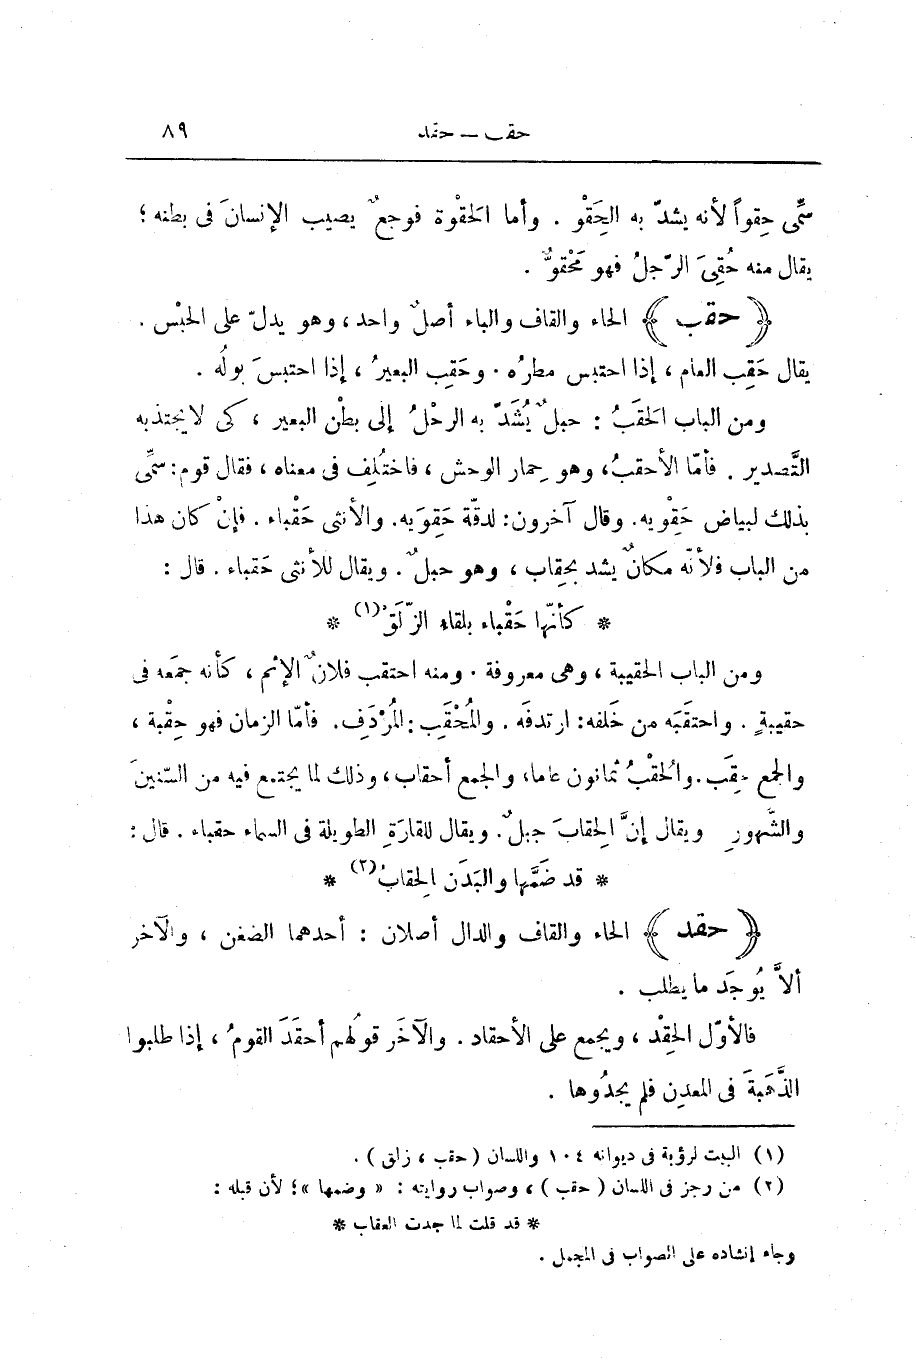 حقب — حقد ٨٩
سمِّى حِقواً لأنه يشدّ به الحَِقْو . وأما الحَقْوة فوجعٌ يصيب الإنسانَ فى بطنه ؛
يقال منه حُقِىَ الرّجلُ فهو مَحْقوٌّ .
﴿ حقب ﴾ الحاء والقاف والباء أصلٌ واحد ، وهو يدلّ على الحبْس .
يقال حَقِب العام ، إذا احتبس مطرُه . وحَقِب البعيرُ ، إذا احتبسَ بولُه .
ومن الباب الحَقَبُ : حبلٌ يُشَدّ به الرحْلُ إلى بطْن البعير ، كى لا يجتذبه
التَّصدير . فأمّا الأحقبُ، وهو حِمار الوحش ، فاختُلِف فى معناه ، فقال قوم: سمِّى
بذلك لبياض حَقِْويه. وقال آخرون: لدقّة حَقِويَه. والأنثى حَقْباء . فإنْ كان هذا
من الباب فلأنّه مكانٌ يشد بحِقاب ، وهو حبلٌ . ويقال للأنثى حَقباء . قال :
* كأنّها حَقْباء بلقاء الزّلَقْ (١) *
ومن الباب الحقيبة ، وهى معروفة . ومنه احتقب فلانٌ الإثم ، كأنه جمَعه فى
حقيبةٍ . واحتقَبَه من خَلفه: ارتدفَه . والمُحْقَِب : المُرْدَِف. فأمّا الزمان فهو حِقْبة ،
والجمع حِقَب. والحُقْبُ ثمانون عاما، والجمع أحقاب، وذلك لما يجتمع فيه من السّنينَ
والشّهور ويقال إنَّ الحِقابَ جبلٌ. ويقال للقارَةِ الطويلة فى السماء حقباء . قال :
* قد ضَمَّها والبَدَن الحِقابُ (٢) *
﴿ حقد ﴾ الحاء والقاف والدال أصلان : أحدهما الضغن ، والآخر
ألاَّ يُوجَد ما يطلب .
فالأوّل الحِقْد ، ويجمع على الأحقاد . والآخَر قولُهم أحقَدَ القومُ ، إذا طلبوا
الذَّهَبةَ فى المعدِن فلم يجدُوها .
(١) البيت لرؤبة فى ديوانه ١٠٤ واللسان ( حقب ، زلق ) .
(٢) من رجز فى اللسان ( حقب ) ، وصواب روايته : « وضمها »؛ لأن قبله :
* قد قلت لما جدت العقاب *
وجاء إنشاده على الصواب فى المجمل .